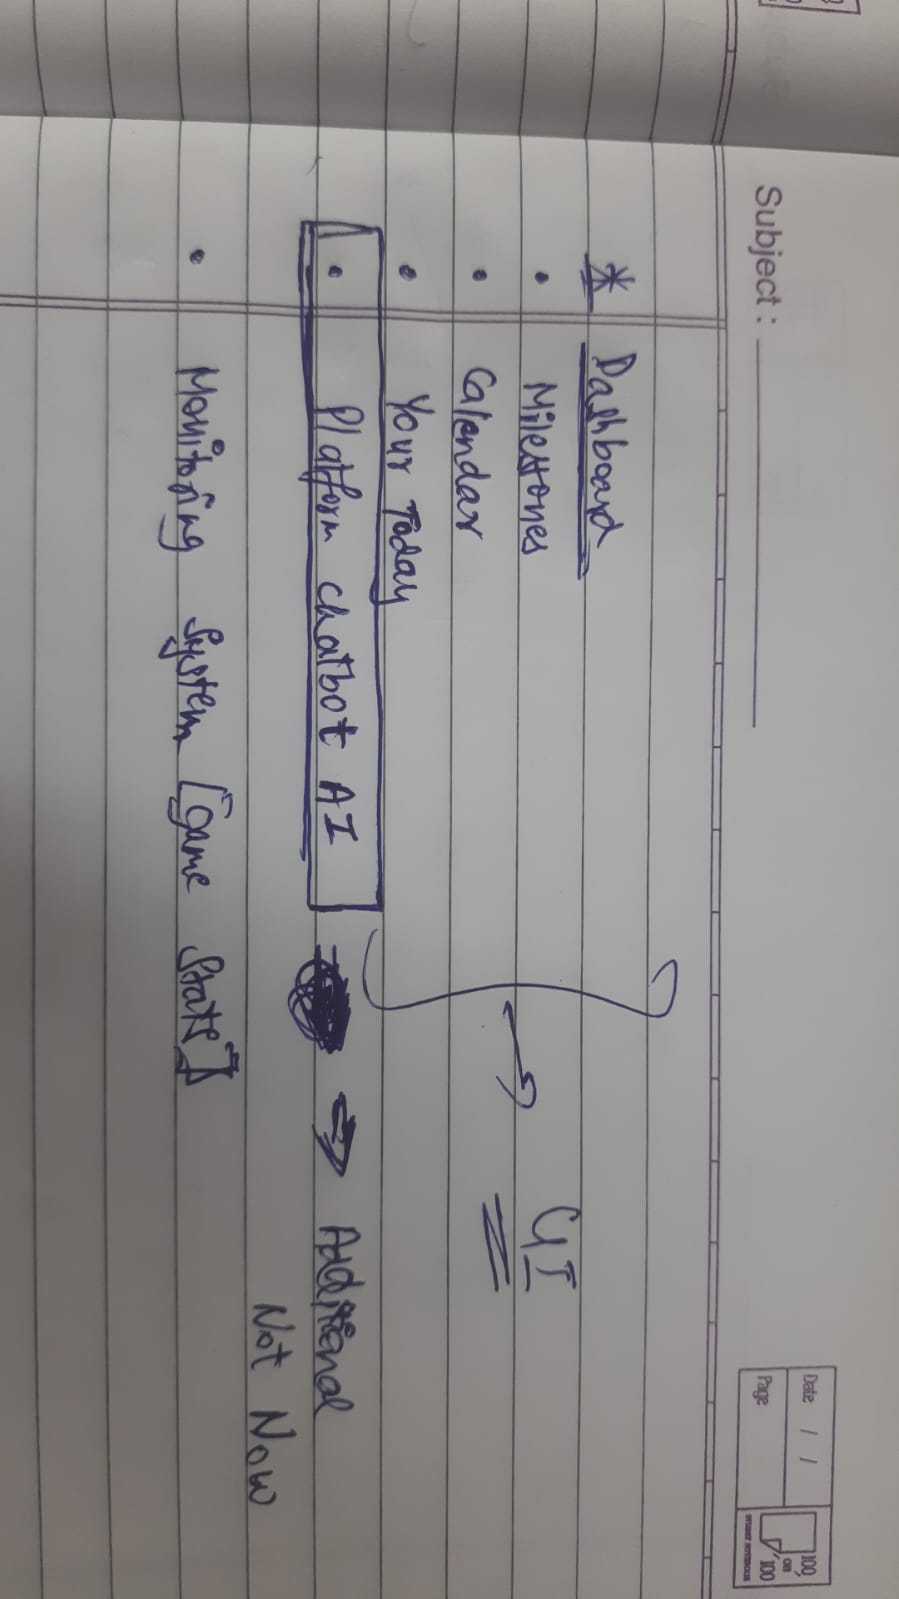 Subject :
Date / /
Page
100
on
100
* Dashboard
• Milestones
• Calendar
• Your Today
UI
• Platform Chatbot AI
Additional
Not Now
• Monitoring System [Game Stats]